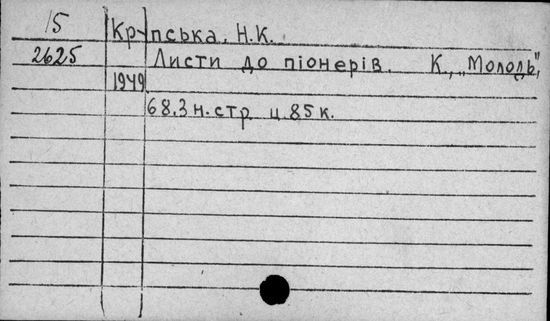 15 Крупська, Н.К.
2625 Листи до піонерів. К., „Молодь",
1949
68,3 н. стр ц. 85 к.